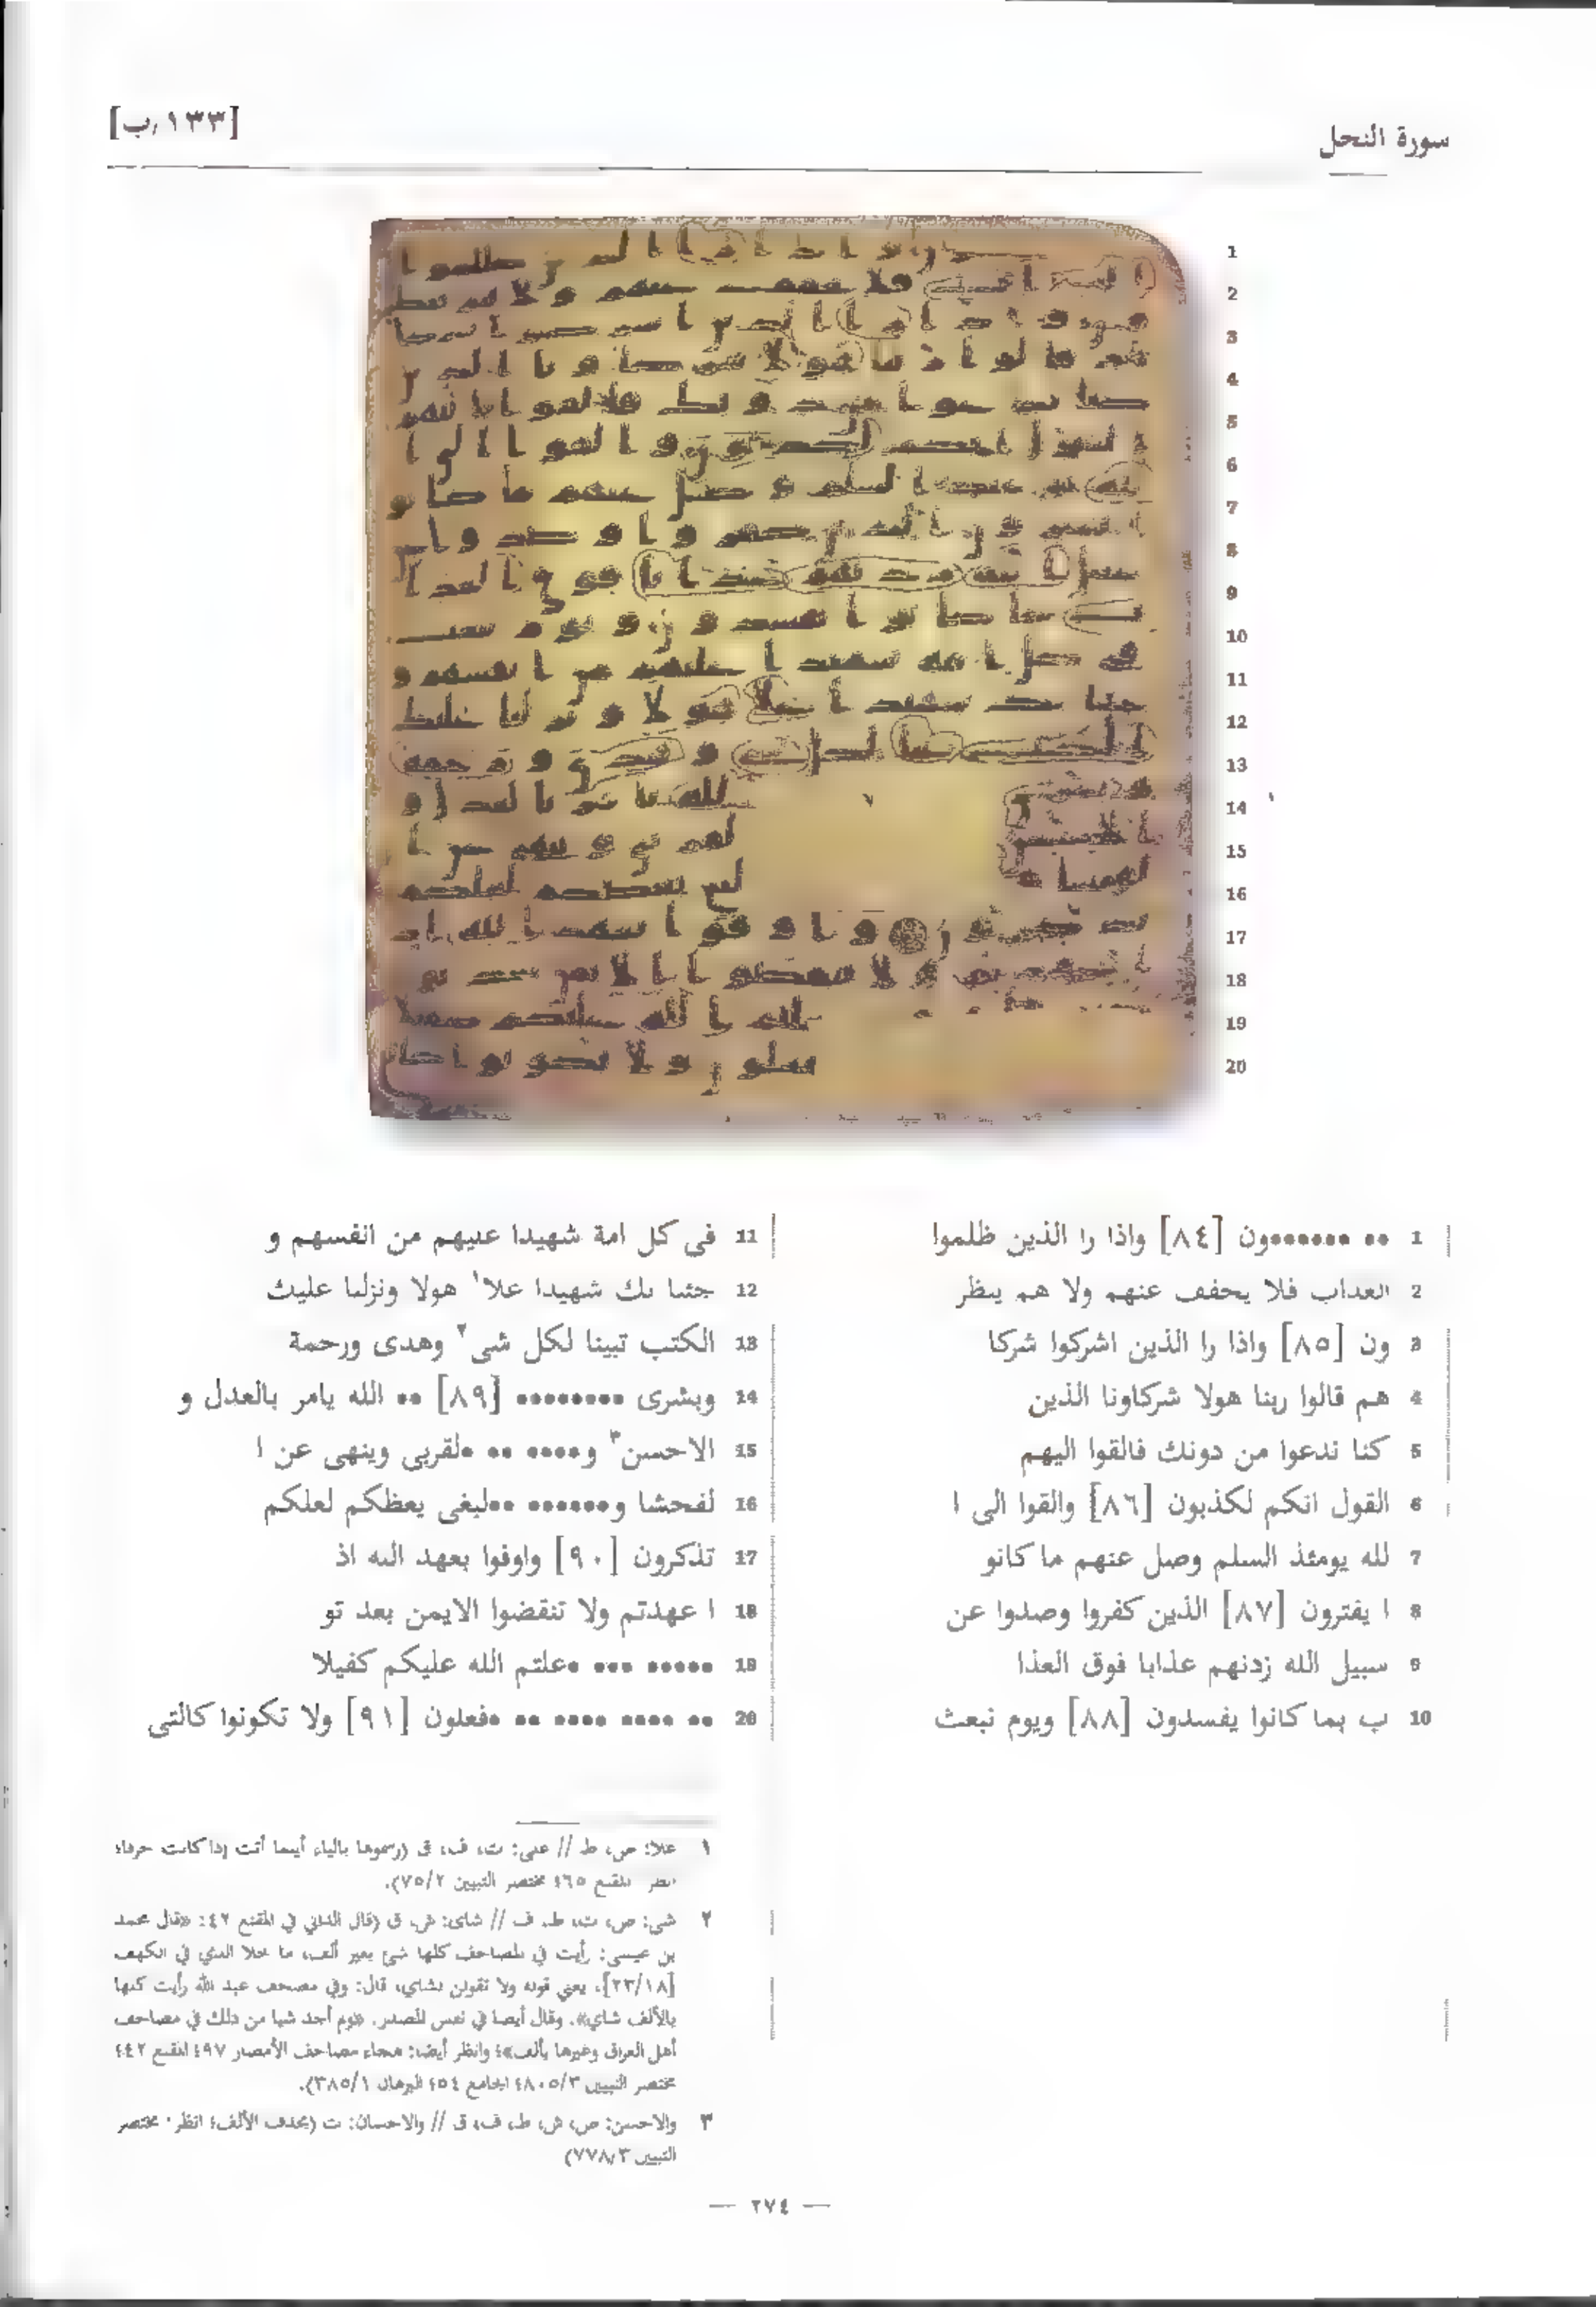 سورة النحل
[١٣٣/ب]
1 •• •••••••ون [٨٤] واذا را الذين ظلموا
2 العداب فلا يحفف عنهم ولا هم ينظر
3 ون [٨٥] واذا را الذين اشركوا شركا
4 هم قالوا ربنا هولا شركاونا الذين
5 كنا ندعوا من دونك فالقوا اليهم
6 القول انكم لكذبون [٨٦] والقوا الى ا
7 لله يومئذ السلم وضل عنهم ما كانو
8 ا يفترون [٨٧] الذين كفروا وصدوا عن
9 سبيل الله زدنهم عذابا فوق العذا
10 ب بما كانوا يفسدون [٨٨] ويوم نبعث
11 فى كل امة شهيدا عليهم من انفسهم و
12 جئنا بك شهيدا علا١ هولا ونزلنا عليك
13 الكتب تبينا لكل شى٢ وهدى ورحمة
14 وبشرى •••••••• [٨٩] •• الله يامر بالعدل و
15 الاحسن٣ و•••• •• •لقربى وينهى عن ا
16 لفحشا و•••••• ••لبغى يعظكم لعلكم
17 تذكرون [٩٠] واوفوا بعهد الله اذ
18 ا عهدتم ولا تنقضوا الايمن بعد تو
19 ••••• ••• •علتم الله عليكم كفيلا
20 •• •••• •••• •• •فعلون [٩١] ولا تكونوا كالتى
١ علا: ص، ط // على: ت، ف، ق (رسموها بالياء أينما أتت إذا كانت حرفا؛
انظر المقنع ٦٥؛ مختصر التبيين ٧٥/٢).
٢ شى: ص، ت، ط، ف // شاى: ش، ق (قال الداني في المقنع ٤٢: «قال محمد
بن عيسى: رأيت في المصاحف كلها شئ بغير ألف، ما خلا الذي في الكهف
[٢٣/١٨]، يعني قوله ولا تقولن لشاي، قال: وفي مصحف عبد الله رأيت كلها
بالألف شاي». وقال أيضا في نفس المصدر: «ولم أجد شيا من ذلك في مصاحف
أهل العراق وغيرها بألف»؛ وانظر أيضا: هجاء مصاحف الأمصار ٩٧؛ المقنع ٤٢؛
مختصر التبيين ٨٠٥/٣؛ الجامع ٥٤؛ البرهان ٣٨٥/١).
٣ والاحسن: ص، ش، ط، ف، ق // والاحسان: ت (بحذف الألف؛ انظر: مختصر
التبيين ٧٧٨/٣)
— ٢٧٤ —